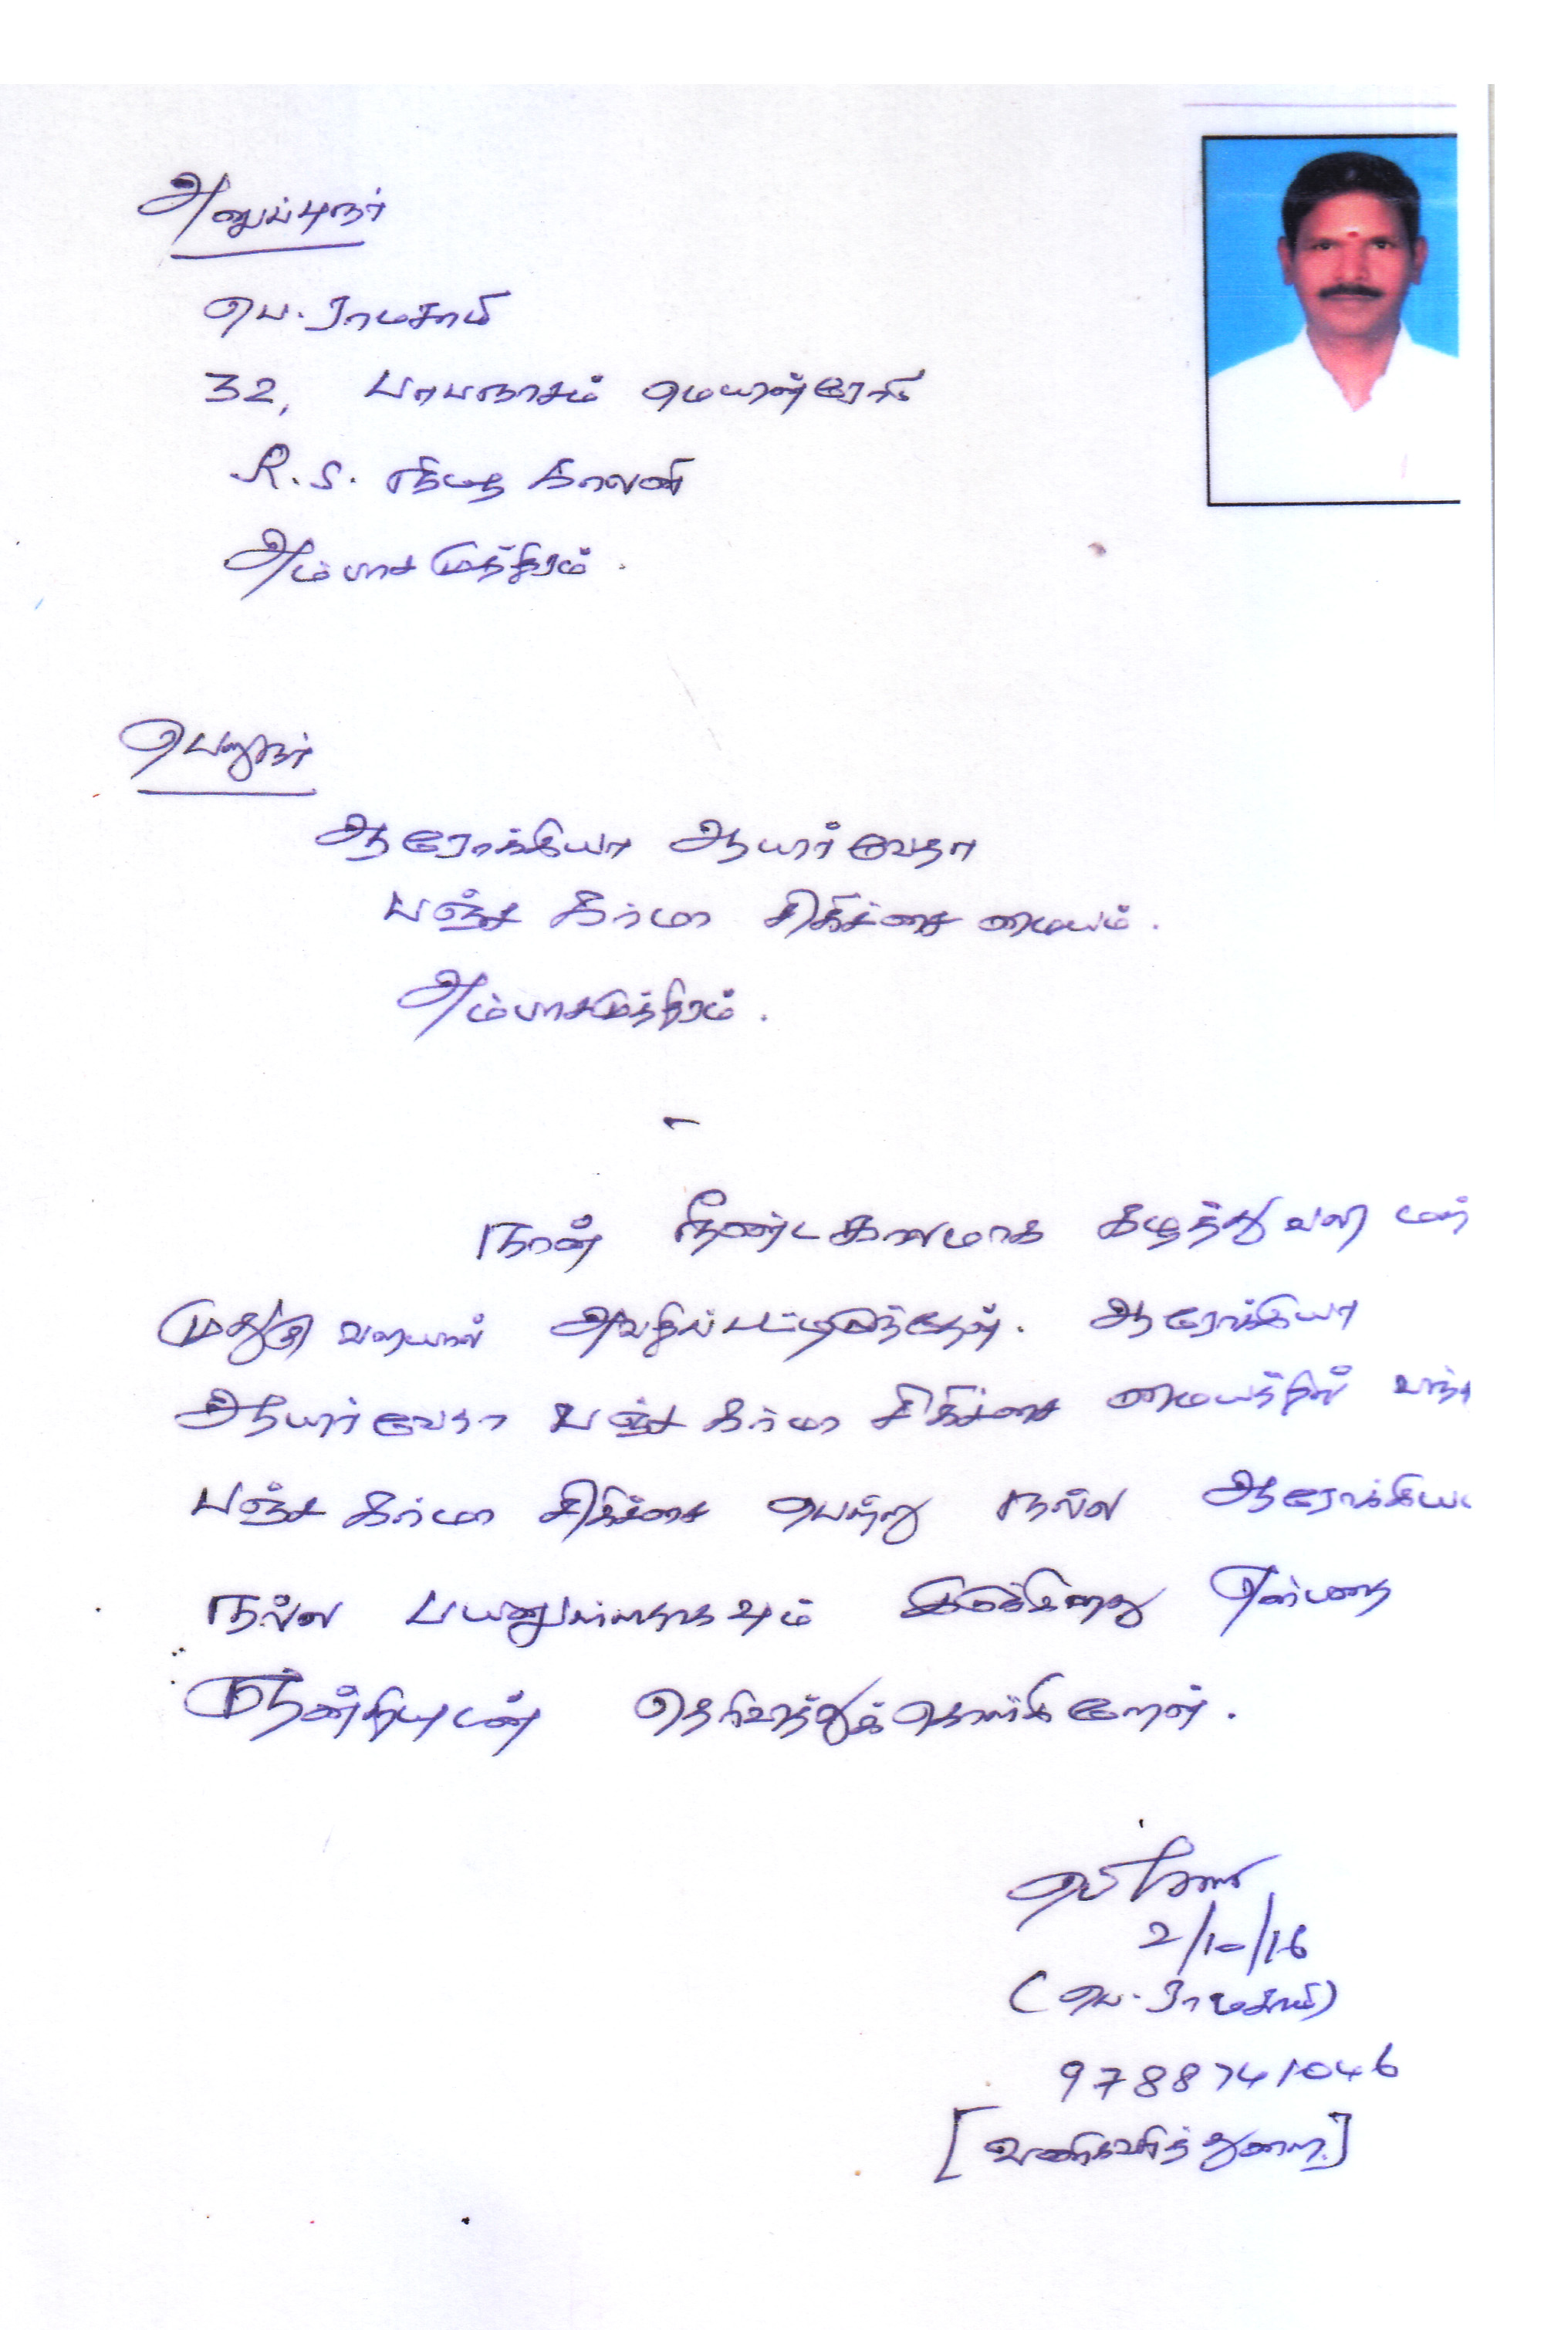 அனுப்புநர்
பெ. ராமசாமி
32, பாபநாசம் மெயின்ரோடு
R.S. காலனி
அம்பாசமுத்திரம்.
பெறுநர்
ஆரோக்கியா ஆயுர்வேதா
பஞ்ச கர்மா சிகிச்சை மையம்.
அம்பாசமுத்திரம்.
நான் நீண்டகாலமாக கழுத்துவலி
முதுகு வலியால் அவதிப்பட்டிருந்தேன். ஆரோக்கியா
ஆயுர்வேதா பஞ்ச கர்மா சிகிச்சை மையத்தில்
பஞ்ச கர்மா சிகிச்சை பெற்று நல்ல
நல்ல பயனுள்ளதாகவும் இருக்கிறது என்பதை
நன்றியுடன் தெரிவித்துக்கொள்கிறேன்.
2/10/16
(பெ. ராமசாமி)
9788741046
[வணிகவரித்துறை]